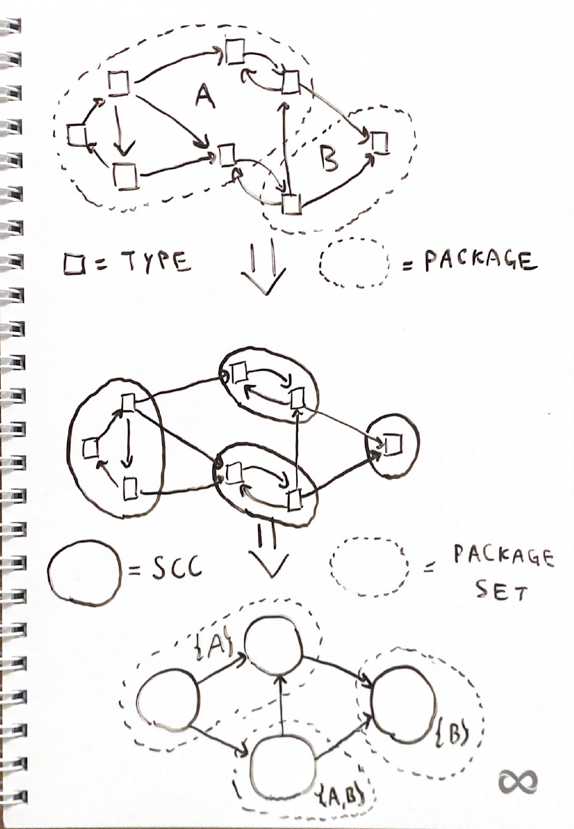 A
B
□ = TYPE
= PACKAGE
= SCC
= PACKAGE
SET
{A}
{B}
{A,B}
∞